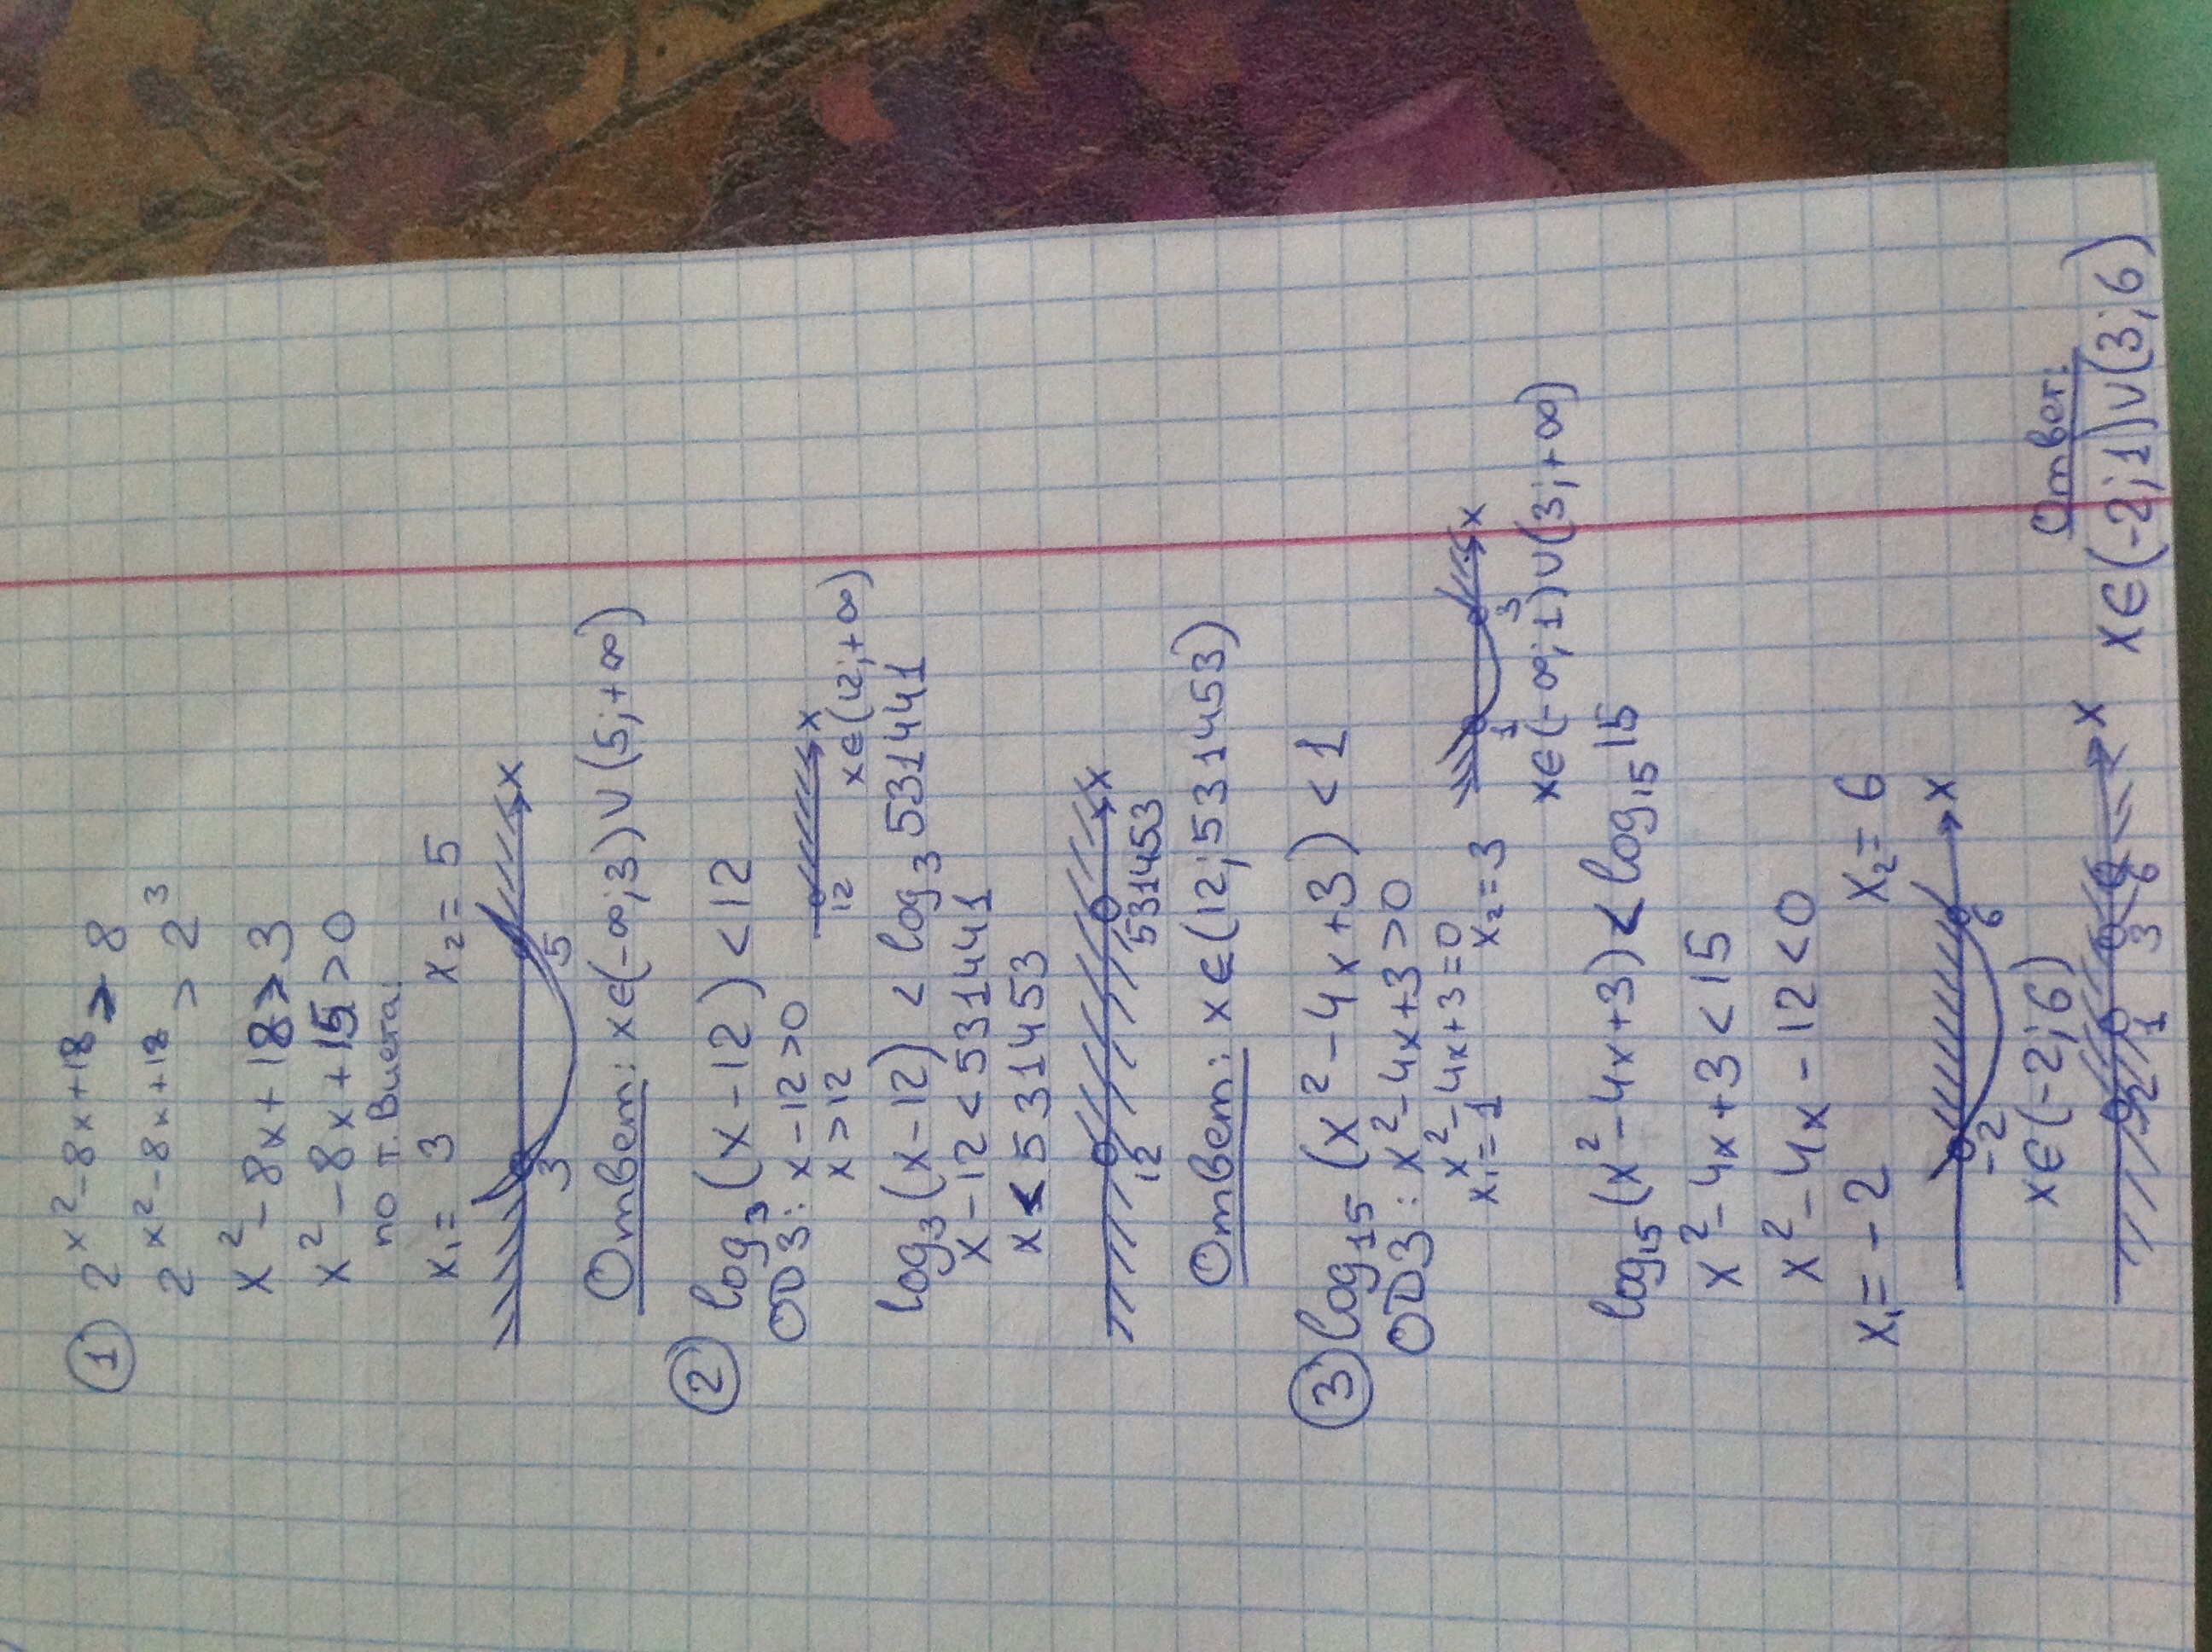 ① 2^(x²-8x+18) > 8
2^(x²-8x+18) > 2³
x²-8x+18>3
x²-8x+15>0
по т. Виета:
x₁= 3 x₂=5
3 5 x
Ответ: x∈(-∞;3)∪(5;+∞)
② log₃(x-12)<12
ОДЗ: x-12>0
x>12
12 x
x∈(12;+∞)
log₃(x-12) < log₃531441
x-12<531441
x<531453
12 531453 x
Ответ: x∈(12;531453)
③ log₁₅(x²-4x+3)<1
ОДЗ: x²-4x+3>0
x²-4x+3=0
x₁=1 x₂=3
1 3 x
x∈(-∞;1)∪(3;+∞)
log₁₅(x²-4x+3)<log₁₅15
x²-4x+3<15
x²-4x-12<0
x₁=-2 x₂=6
-2 6 x
x∈(-2;6)
-2 1 3 6 x
Ответ:
x∈(-2;1)∪(3;6)